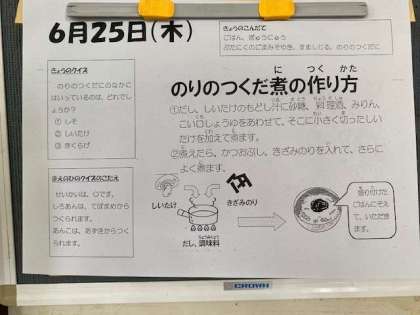 6月25日(木)
きょうのこんだて
ごはん、ぎゅうにゅう
ぶたにくのごまみそやき、すましじる、のりのつくだに
きょうのクイズ
のりのつくだにのなかに
はいっているのは、どれでし
ょうか?
① しそ
② しいたけ
③ きくらげ
のりのつくだ煮の作り方
①だし、しいたけのもどし汁に砂糖、料理酒、みりん、
こい口しょうゆをあわせて、そこに小さく切ったしい
たけを加えて煮ます。
②煮えたら、かつおぶし、きざみのりを入れて、さらに
よく煮ます。
まえのひのクイズのこたえ
せいかいは、〇です。
しろあんは、てぼまめから
つくられます。
あんこは、あずきからつく
られます。
しいたけ
きざみのり
だし、調味料
盛り付けた
ごはんにそえ
て、いただき
ます。
CROWN